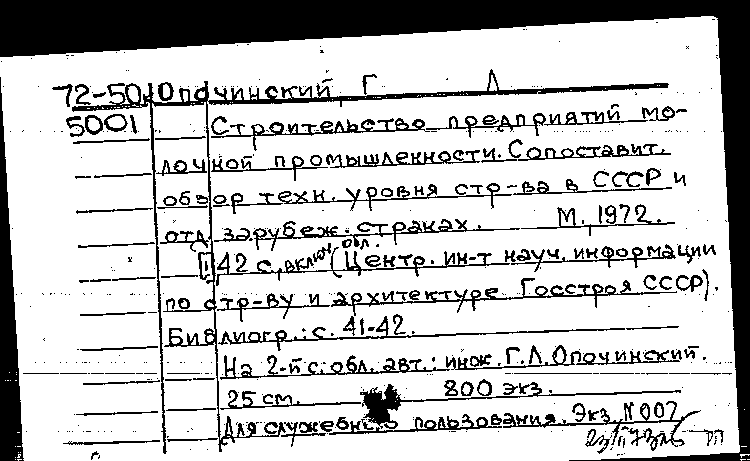 72-50 Опочинский, Г Л
5001 Строительство предприятий мо-
лочной промышленности. Сопоставит.
обзор техн. уровня стр-ва в СССР и
отд. зарубеж. странах. М., 1972.
42 с, включ. обл. (Центр. ин-т науч. информации
по стр-ву и архитектуре Госстроя СССР).
Библиогр.: с. 41-42.
На 2-й с. обл. авт.: инж. Г.Л. Опочинский.
25 см. 800 экз.
Для служебного пользования. Экз. N 007